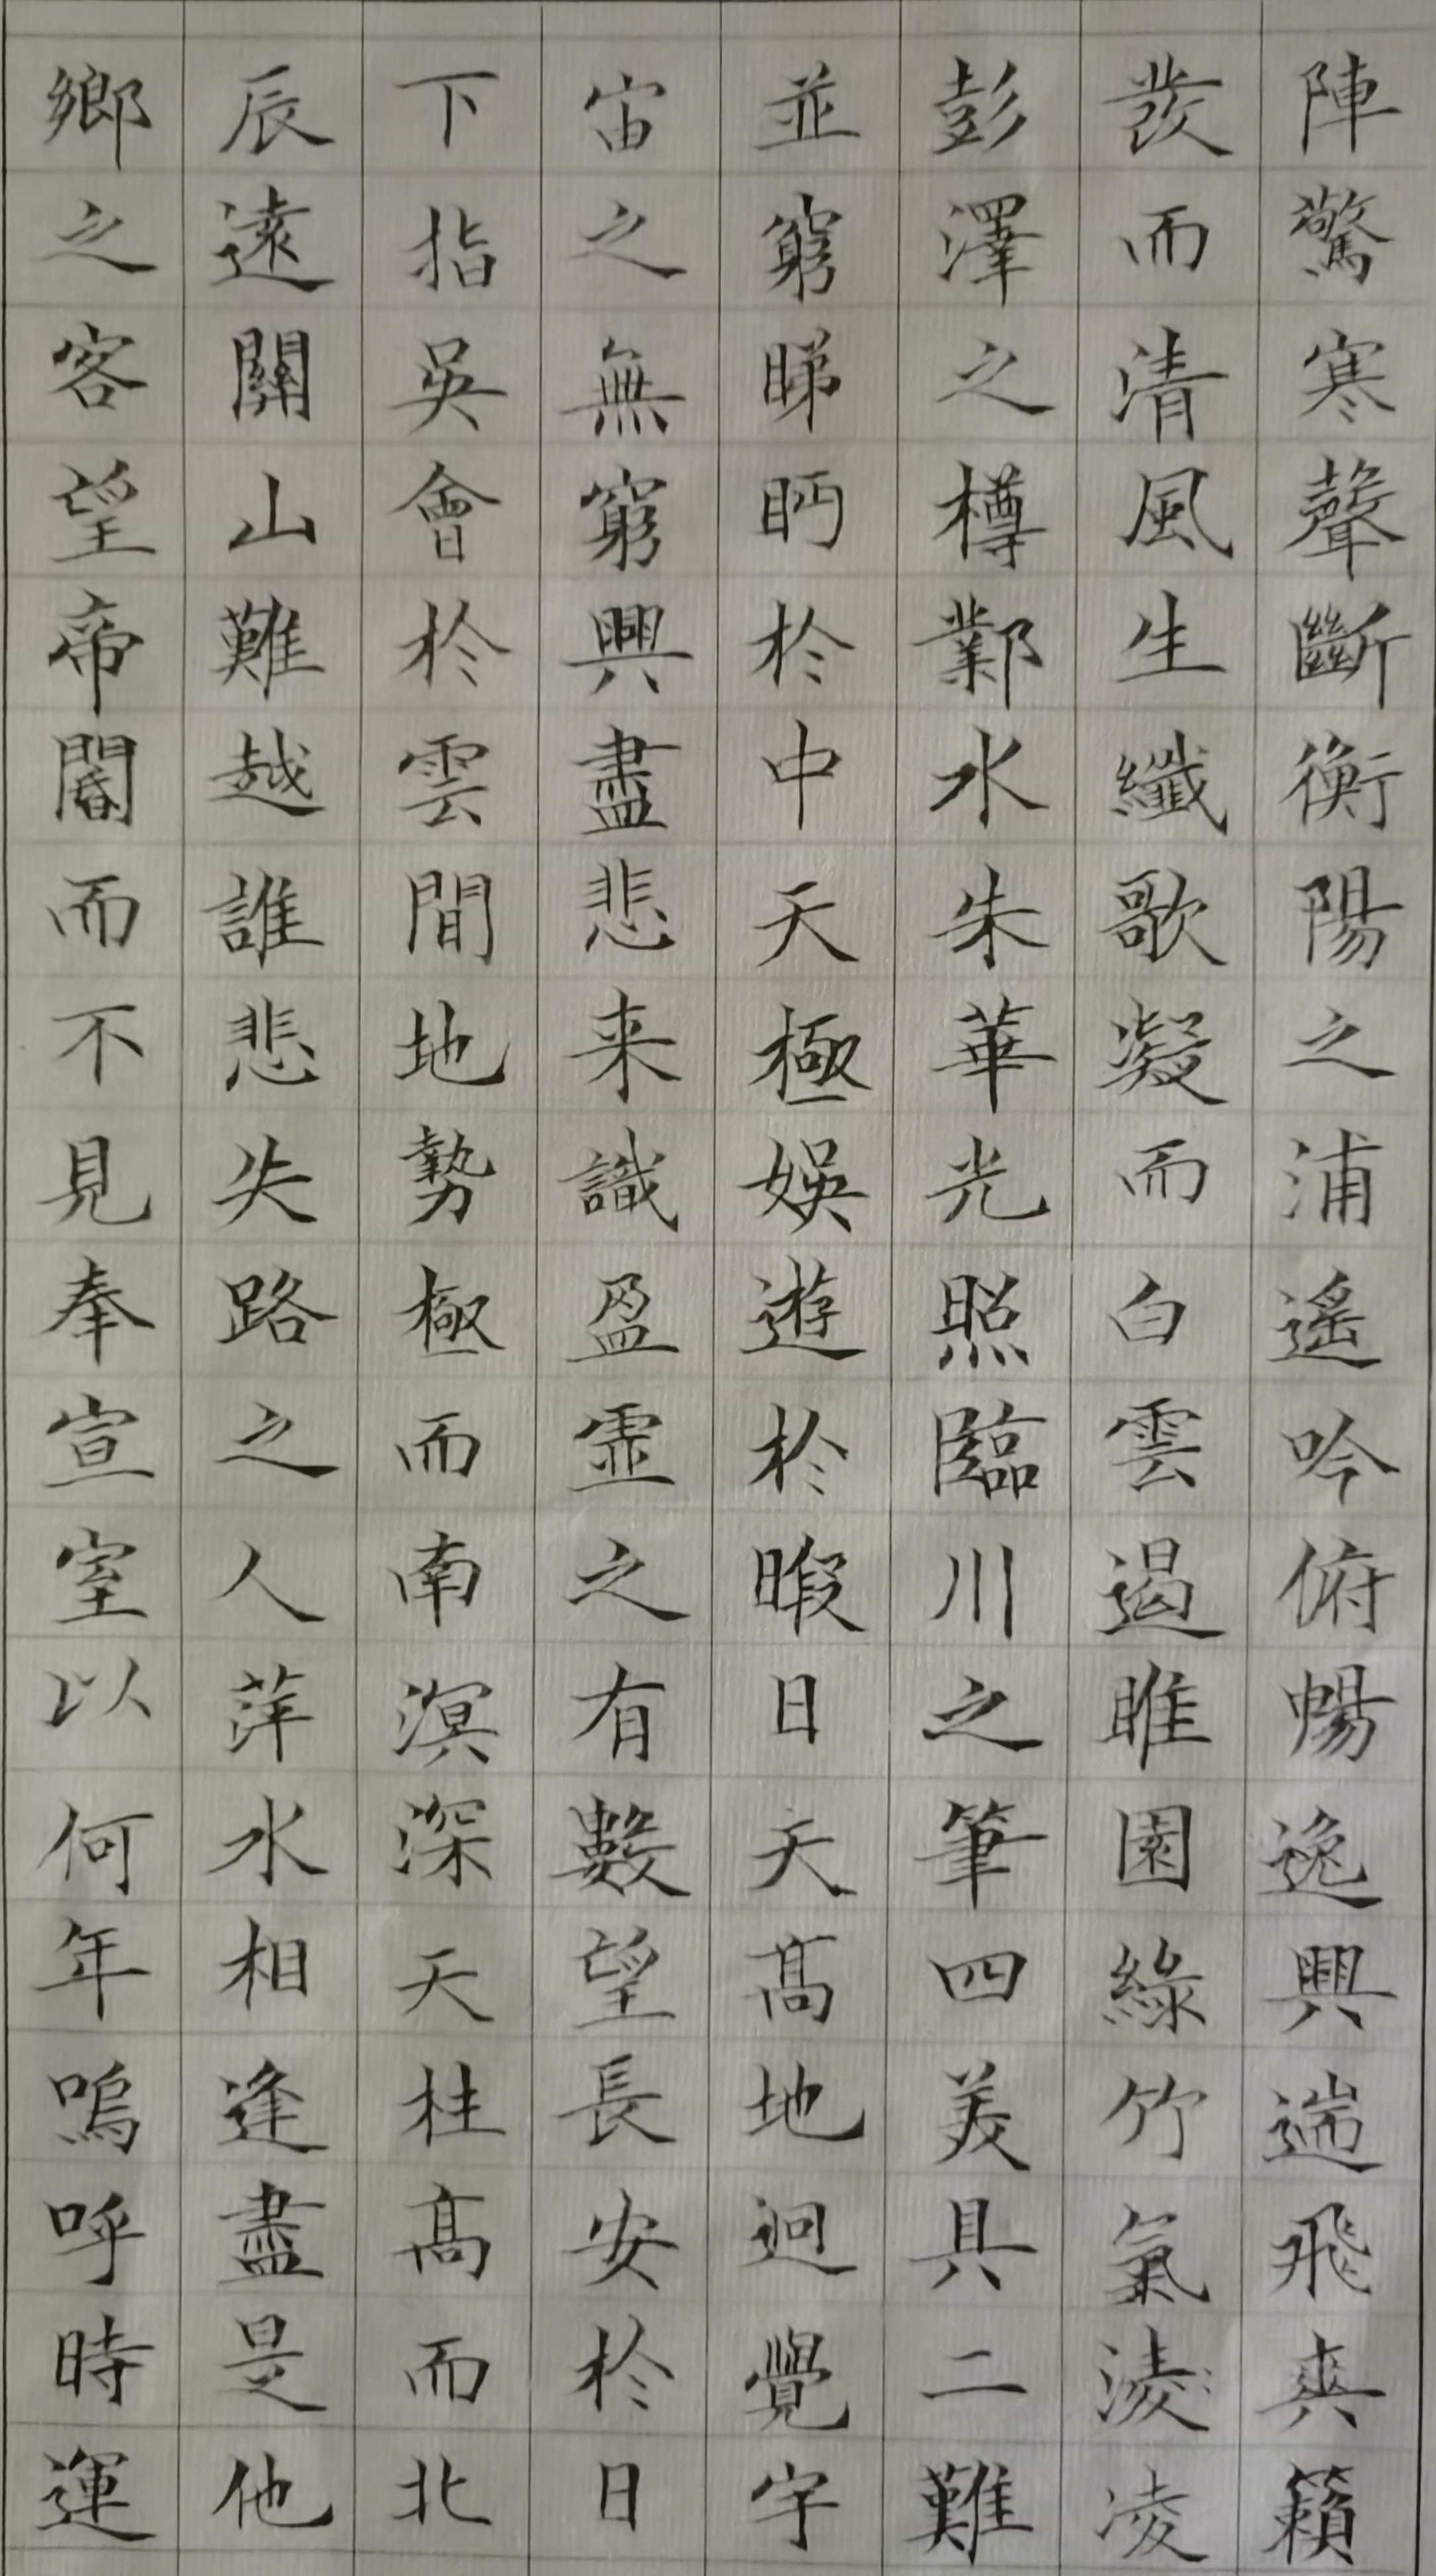 陣驚寒聲斷衡陽之浦遙吟俯暢逸興遄飛爽籟
發而清風生纖歌凝而白雲遏睢園綠竹氣淩凌
彭澤之樽鄴水朱華光照臨川之筆四美具二難
並窮睇眄於中天極娛遊於暇日天高地迥覺宇
宙之無窮興盡悲来識盈虛之有數望長安於日
下指吳會於雲間地勢極而南溟深天柱高而北
辰遠關山難越誰悲失路之人萍水相逢盡是他
鄉之客望帝閽而不見奉宣室以何年嗚呼時運